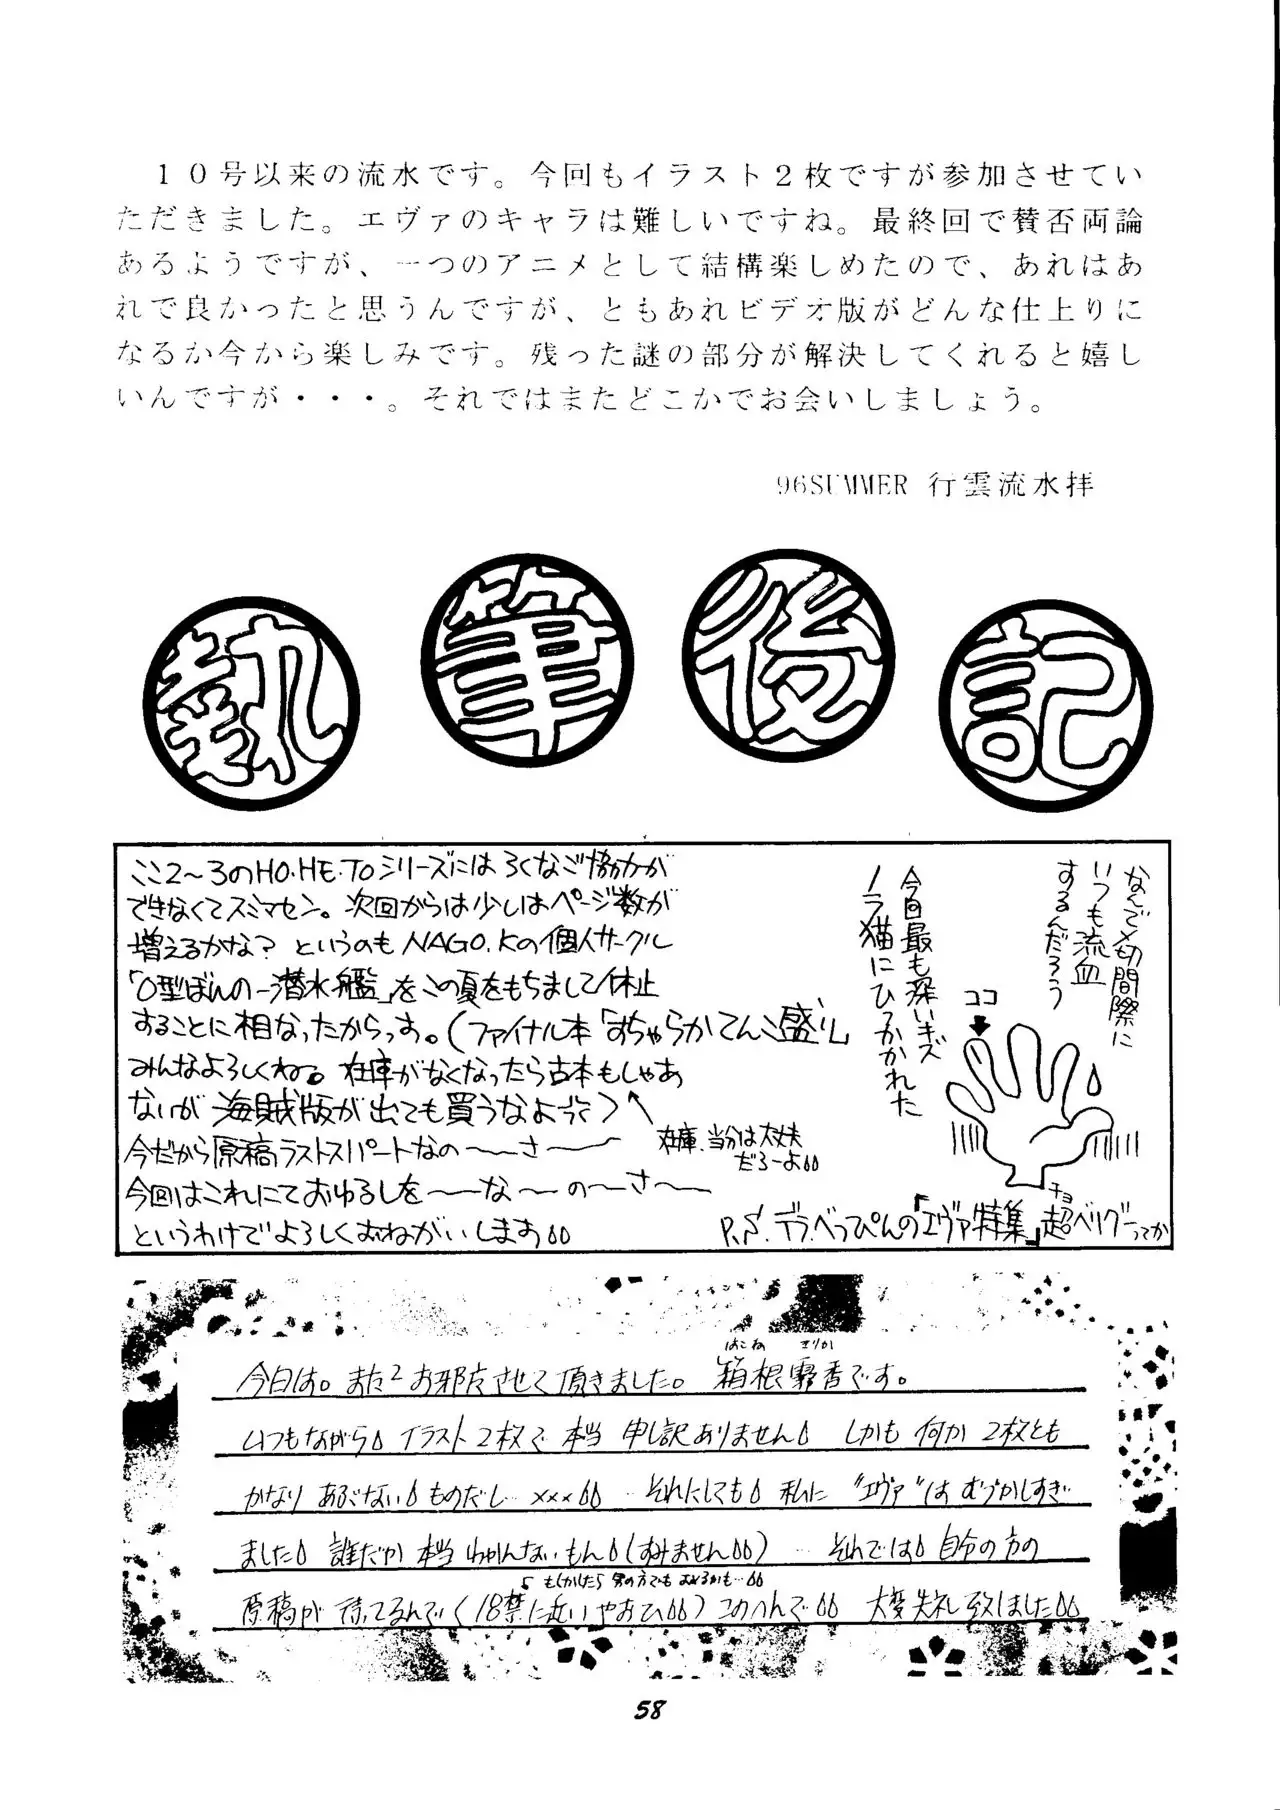 １０号以来の流水です。今回もイラスト２枚ですが参加させてい
ただきました。エヴァのキャラは難しいですね。最終回で賛否両論
あるようですが、一つのアニメとして結構楽しめたので、あれはあ
れで良かったと思うんですが、ともあれビデオ版がどんな仕上りに
なるか今から楽しみです。残った謎の部分が解決してくれると嬉し
いんですが・・・。それではまたどこかでお会いしましょう。
96SUMMER 行雲流水拝
執筆後記
ここ2〜3のHO・HE・TOシリーズにはろくなご協力が
できなくてスミマセン。次回からは少しはページ数が
増えるかな? というのもNAGO.Kの個人サークル
「O型ぼんの一潜水艦」をこの夏をもちまして休止
することに相なったからっす。(ファイナル本「おちゃらかてんこ盛り」
みんなよろしくねる。在庫がなくなったら古本もしゃあ
ないが海賊版が出ても買うなよ)
在庫、当分は大丈夫
だろーよ
今だから原稿ラストスパートなの〜〜さ〜〜
今回はこれにておゆるしを〜〜な〜の〜さ〜
というわけでよろしくおねがいします
なんで〆切間際に
いつも流血
するんだろう
今回最も深いキズ
ノラ猫にひっかかれた
ココ
P.S.デラべっぴんの「エヴァ特集」超ベリグーってか
チョ
はこね きりか
今日は。また2お邪广させて頂きました。箱根霧香です。
いつもながら イラスト2枚で 本当 申し訳ありません しかも 何か 2枚とも
かなり あぶない ものだし…×××…それにしても 私に "エヴァ"は むづかしすぎ
ました 誰だか 本当 わかんないもん(すみません)…それでは 自分の方の
もしかしたら 男の方でも おそるかも…
原稿が 待ってるんで(18禁に近いやおひ)このへんで 大変失礼致しました
58